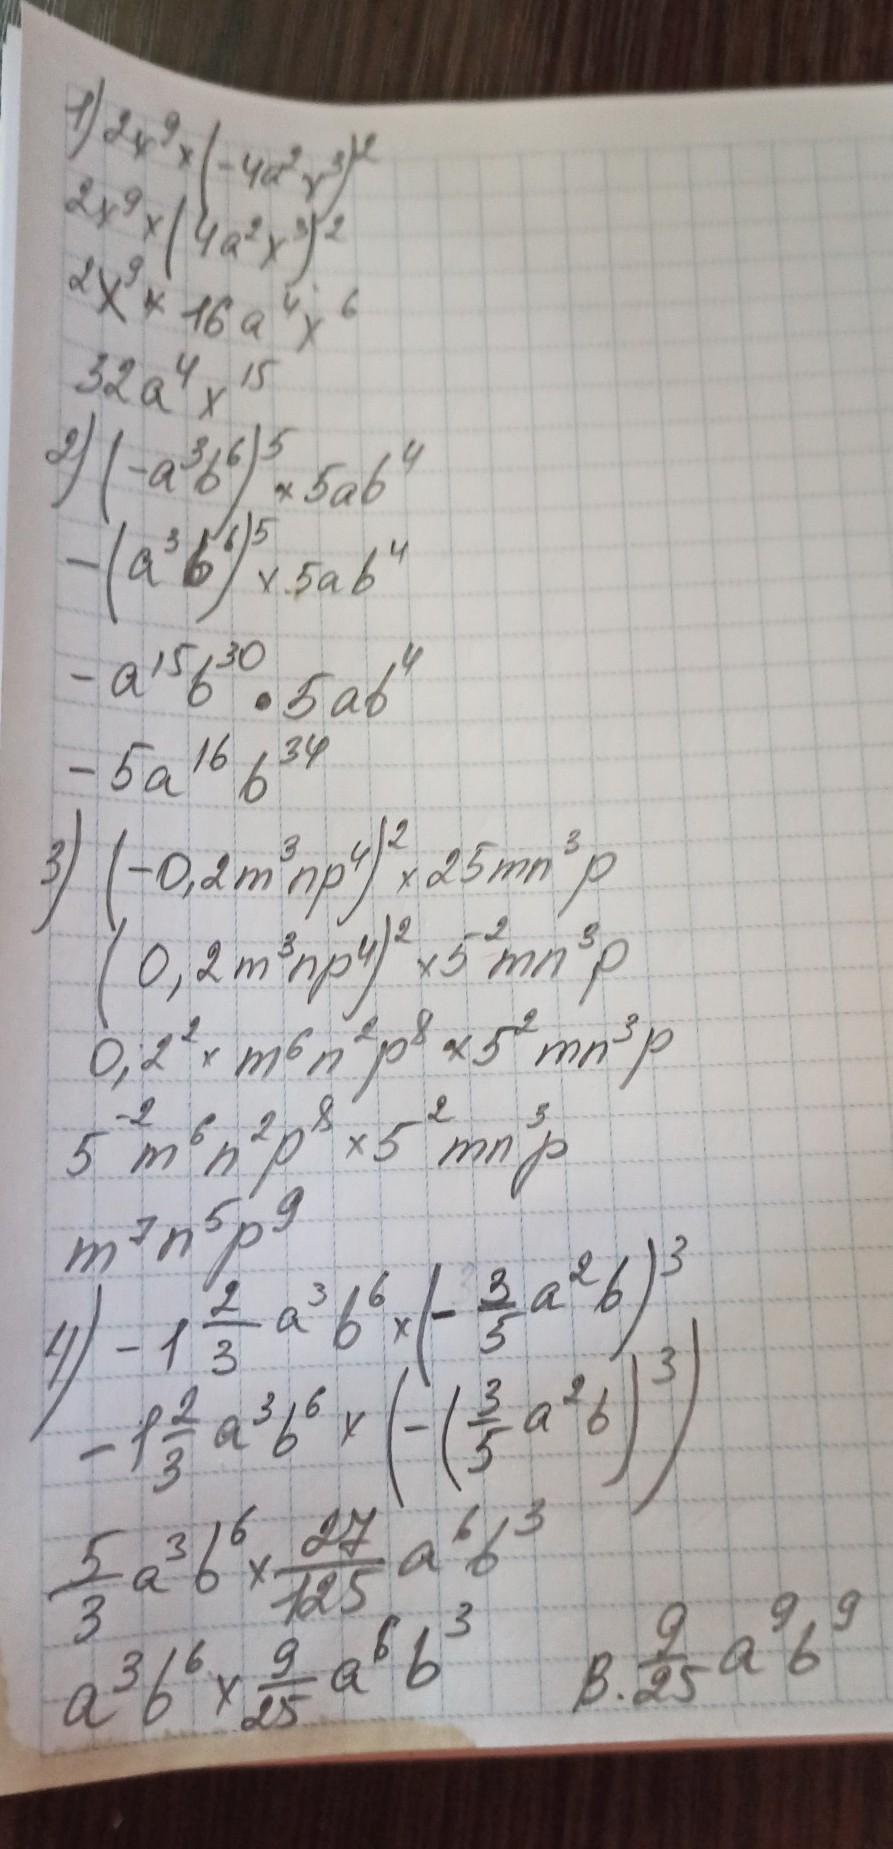 1) 2x⁹ × (-4a²x³)²
2x⁹ × (4a²x³)²
2x⁹ × 16a⁴x⁶
32a⁴x¹⁵
2) (-a³b⁶)⁵ × 5ab⁴
-(a³b⁶)⁵ × 5ab⁴
-a¹⁵b³⁰ • 5ab⁴
-5a¹⁶b³⁴
3) (-0,2m³np⁴)² × 25mn³p
(0,2m³np⁴)² × 5²mn³p
0,2² × m⁶n²p⁸ × 5²mn³p
5⁻²m⁶n²p⁸ × 5²mn³p
m⁷n⁵p⁹
4) -1 2/3 a³b⁶ × (-3/5 a²b)³
-1 2/3 a³b⁶ × (-(3/5 a²b)³)
5/3 a³b⁶ × 27/125 a⁶b³
a³b⁶ × 9/25 a⁶b³
В. 9/25 a⁹b⁹